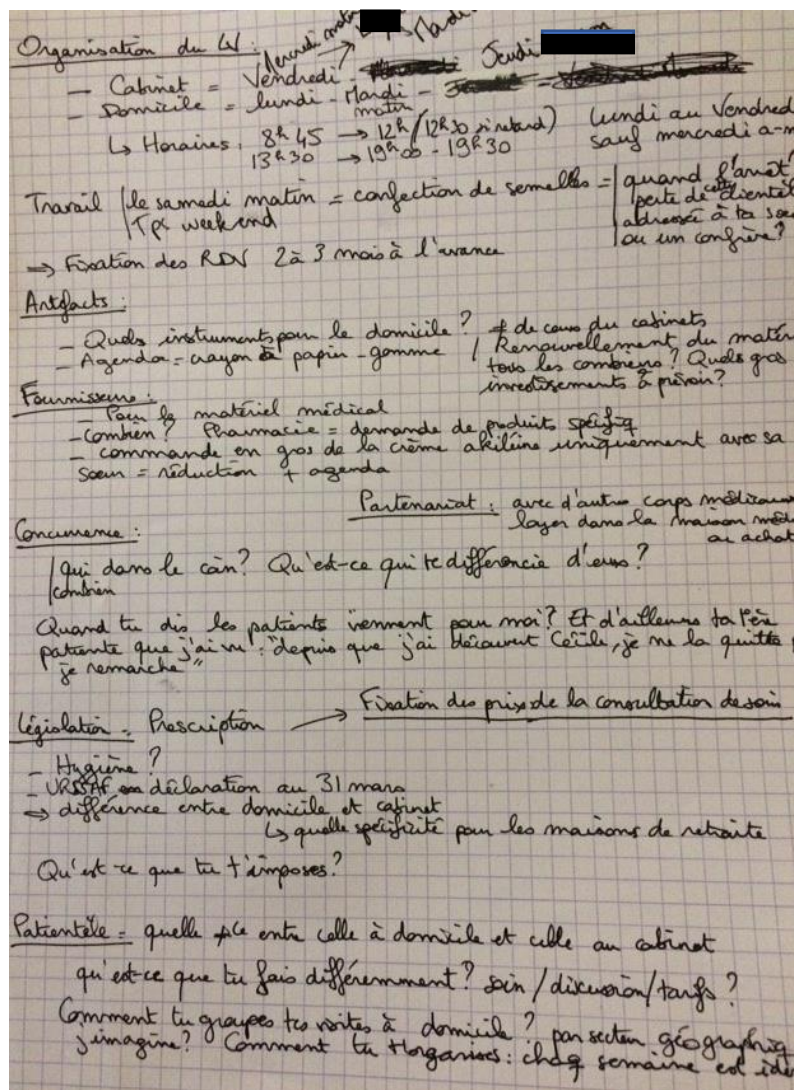 Organisation du W :
Mercredi matin
Mardi
- Cabinet = Vendredi - Jeudi
- Domicile = lundi - Mardi -
matin
↳ Horaires : 8h45 → 12h / (12h30 si retard) lundi au Vendred
13h30 → 19h00 - 19h30 sauf mercredi a-m
Travail | le samedi matin = confection de semelles = | quand l'arrêt?
| Tps weekend | perte de cette clientèl
| adressée à ta soeu
| ou un confrère?
⇒ Fixation des RDV 2 à 3 mois à l'avance
Artefacts :
- Quels instruments pour le domicile? ≠ de ceux du cabinets
- Agenda = crayon à papier - gomme / Renouvellement du matér
tous les combiens? Quels gros
investissements à prévoir?
Fournisseurs :
- Pour le matériel médical
- combien? Pharmacie = demande de produits spécifiq
- commande en gros de la crème akiléïne uniquement avec sa
soeur = réduction + agenda
Partenariat : avec d'autres corps médicaux
loyer dans la maison méd
ou achat
Concurrence :
| qui dans le coin? Qu'est-ce qui te différencie d'eux?
| combien
Quand tu dis les patients viennent pour moi? Et d'ailleurs ta 1ère
patiente que j'ai vu : "depuis que j'ai découvert Cécile, je ne la quitte p
je remarche"
Législation = Prescription → Fixation des prix de la consultation de soin
- Hygiène?
- URSSAF déclaration au 31 mars
⇒ différence entre domicile et cabinet
↳ quelle spécificité pour les maisons de retraite
Qu'est-ce que tu t'imposes?
Patientèle = quelle ≠ce entre celle à domicile et celle au cabinet
qu'est-ce que tu fais différemment? soin / discussion / tarifs?
Comment tu groupes tes visites à domicile? par secteur géographiq
j'imagine? Comment tu t'organises : chaq semaine est iden